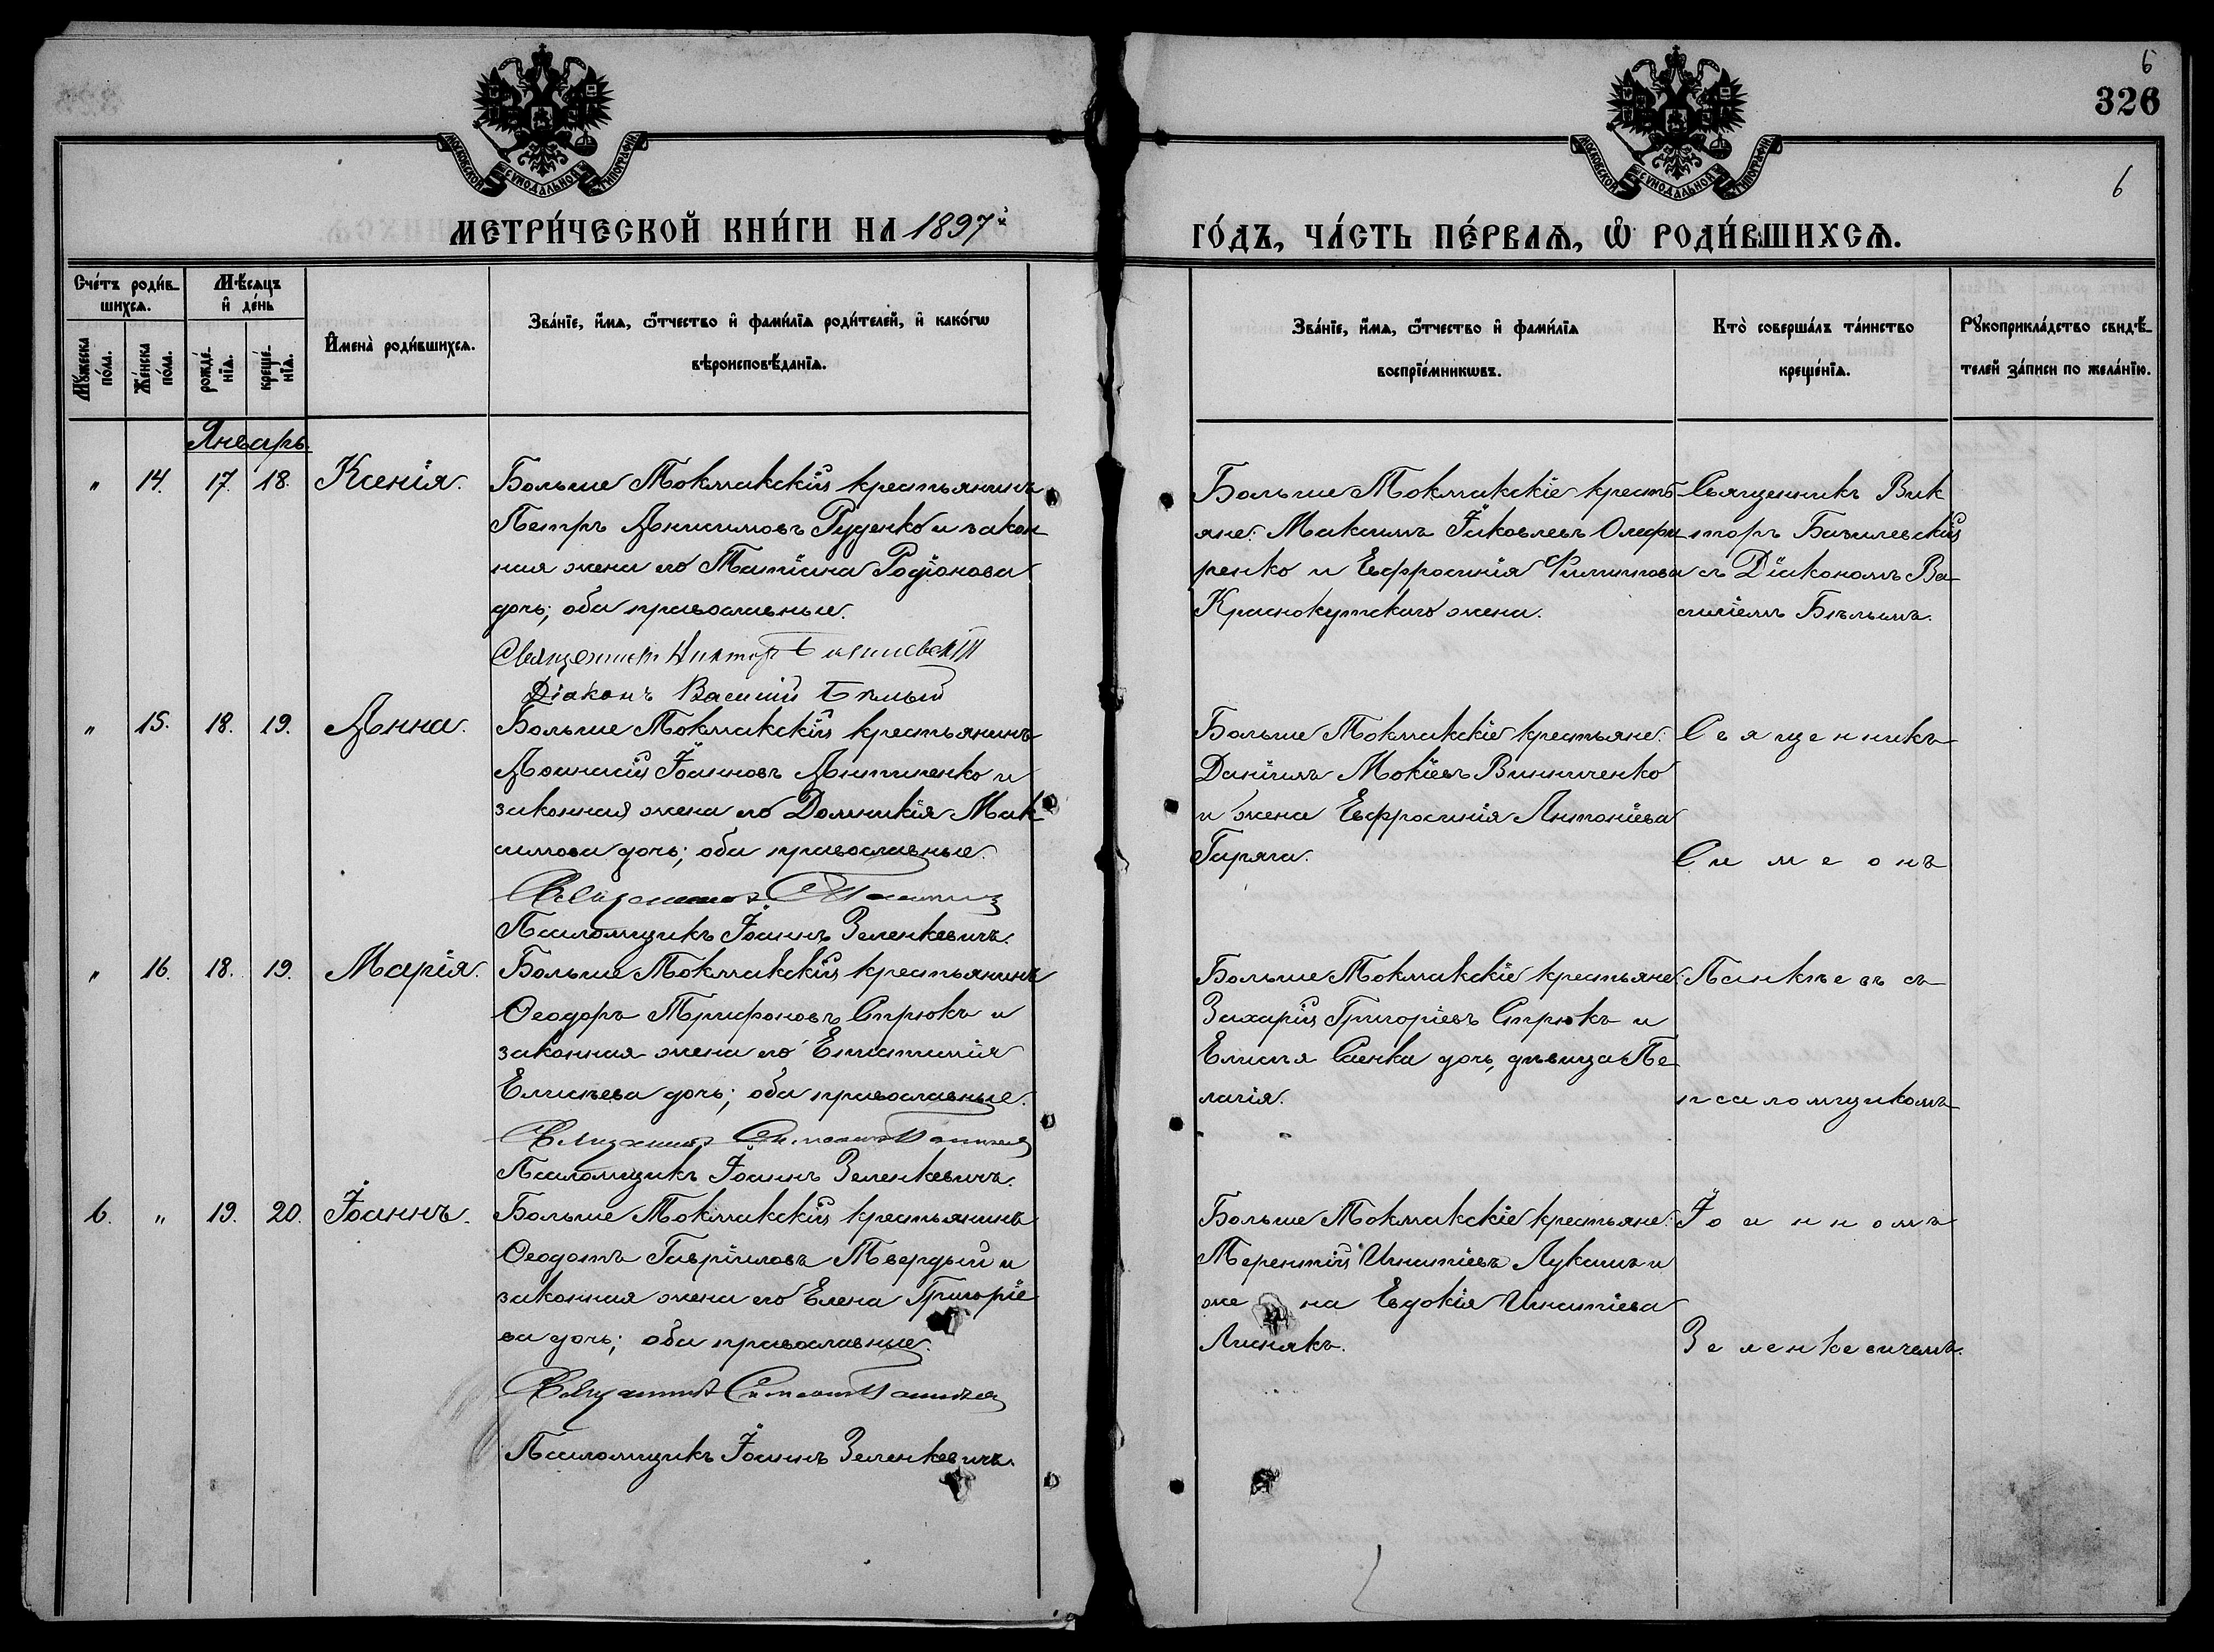 6
326
6
МОСКОВСКОЙ СѴНОДАЛЬНОЙ ТИПОГРАФІИ
МОСКОВСКОЙ СѴНОДАЛЬНОЙ ТИПОГРАФІИ
МЕТРИ́ЧЕСКОЙ КНИ́ГИ НА 1897й
ГО́ДЪ, ЧА́СТЬ ПЕ́РВАѦ, Ѽ РОДИ́ВШИХСѦ.
Сче́тъ роди́в-
шихсѧ.
Мꙋ́жеска по́ла.
Же́нска по́ла.
Мѣ́сѧцъ
и҆ де́нь
рожде́-нїѧ.
креще́-нїѧ.
И҆мена̀ роди́вшихсѧ.
Зва́нїе, и҆́мѧ, ѻ҆́тчество и҆ фами́лїѧ роди́телей, и҆ како́гѡ
вѣроисповѣ́данїѧ.
Зва́нїе, и҆́мѧ, ѻ҆́тчество и҆ фами́лїѧ
воспрїе́мникѡвъ.
Кто̀ соверша́лъ та́инство
креще́нїѧ.
Рꙋкоприкла́дство свидѣ́-
телей за́писи по жела́нїю.
Январь.
" 14. 17. 18. Ксенія.
Больше Токмакскій крестьянинъ
Петръ Анисимовъ Руденко и закон
ная жена его Татіана Родіонова
дочь; оба православные.
Священникъ Викторъ Базилевскій
Діаконъ Василій Бѣлый
Больше Токмакскіе кресть-
яне: Максимъ Іаковлевъ Олефи
ренко и Евфросинія Филиппова
Краснокутскаго жена.
Священникъ Вик
торъ Базилевскій
съ Діакономъ Ва-
силіемъ Бѣлымъ.
" 15. 18. 19. Анна.
Больше Токмакскій крестьянинъ
Аѳанасій Іоанновъ Антипенко и
законная жена его Домникія Мак
симова дочь; оба православные.
Священникъ
Псаломщикъ Іоаннъ Зеленкевичъ.
Больше Токмакскіе крестьяне:
Даніилъ Мокіевъ Винниченко
и жена Евфросинія Антоніева
Гиряга.
Священникъ
Симеонъ
" 16. 18. 19. Марія.
Больше Токмакскій крестьянинъ
Ѳеодоръ Трифоновъ Стрюкъ и
законная жена его Епистимія
Елисѣева дочь; оба православные.
Священникъ Симеонъ
Псаломщикъ Іоаннъ Зеленкевичъ.
Больше Токмакскіе крестьяне:
Захарій Григоріевъ Стрюкъ и
Елисѣя Саенка дочь, дѣвица Пе
лагія.
Панкѣевъ съ
псаломщикомъ
6. " 19. 20. Іоаннъ.
Больше Токмакскій крестьянинъ
Ѳеодотъ Гавріиловъ Твердый и
законная жена его Елена Григоріе
ва дочь; оба православные.
Священникъ Симеонъ
Псаломщикъ Іоаннъ Зеленкевичъ.
Больше Токмакскіе крестьяне:
Терентій Игнатіевъ Лукашъ и
же на Евдокія Игнатіева
Лиснякъ.
Іоанномъ
Зеленкевичемъ.